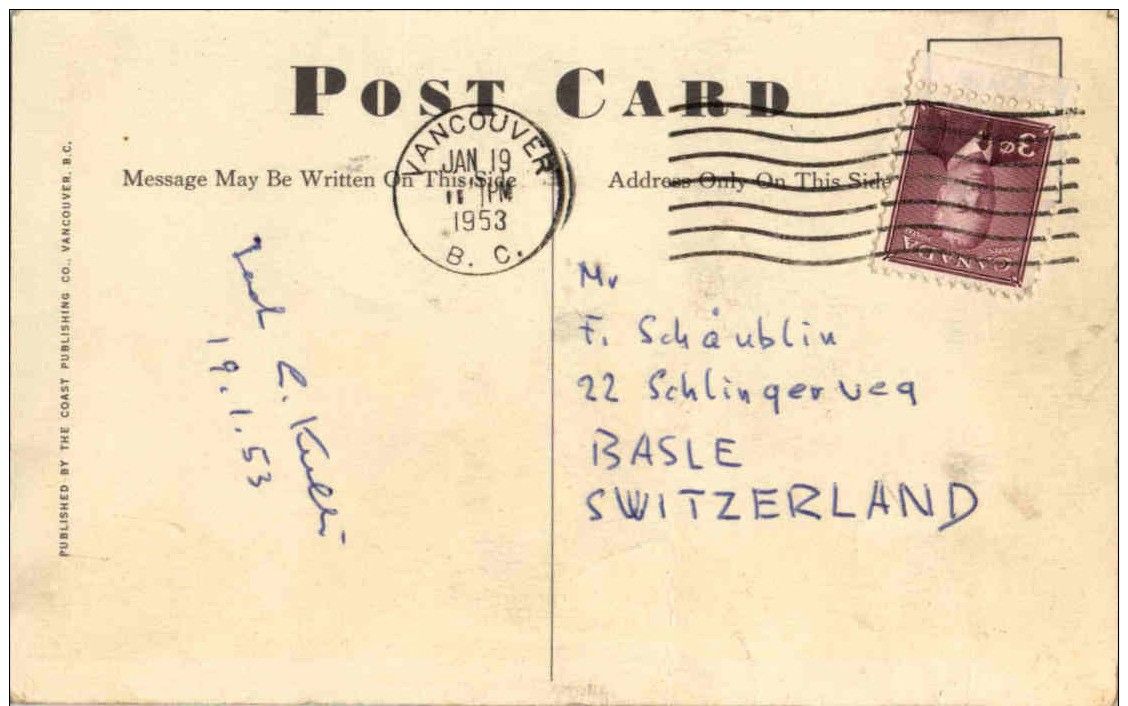 POST CARD
VANCOUVER
JAN 19
PM
1953
B. C.
Message May Be Written On This Side
Address Only On This Side
3¢
CANADA
Mr
F. Schäublin
22 Schlingerweg
BASLE
SWITZERLAND
19.1.53
PUBLISHED BY THE COAST PUBLISHING CO., VANCOUVER, B.C.